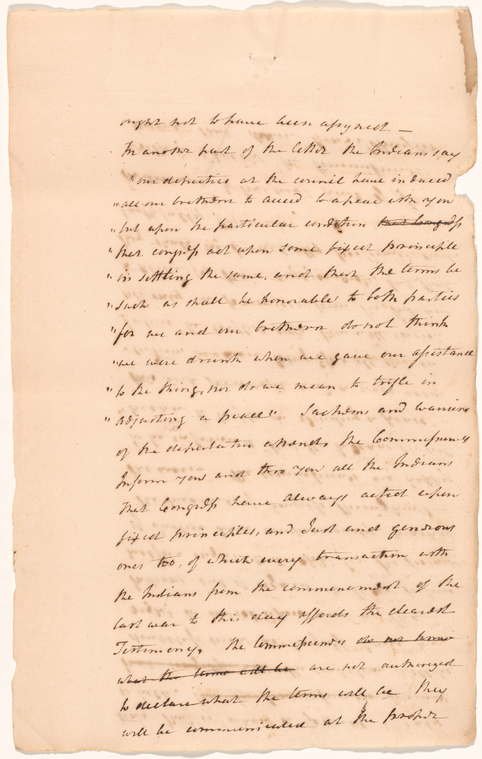 ought not to have been assigned —
In another part of the letter the Indians say
"our deputies at the council have induced
"all our brethern to acceed to a peace with you
"but upon the particular condition that Congress
"that congress act upon some fixect principle
"in settling the same, and that the terms be
"such as shall be honorable to both parties
"for we and our brethern do not think
"we were drunk when we gave our assistance
"to the King, nor do we mean to trifle in
"adjusting a peace" Sachems and warriors
of the deputation attends the Commissioners
Inform you and thro you all the Indians
that Congress have always acted upon
fixed principles, and Just and generous
ones too, of which every transaction with
the Indians from the commencement of the
last war to this day affords the clearest
Testimony. the Commissioners do not know
what the terms will be are not authorized
to declare what the terms will be they
will be communicated at the proper